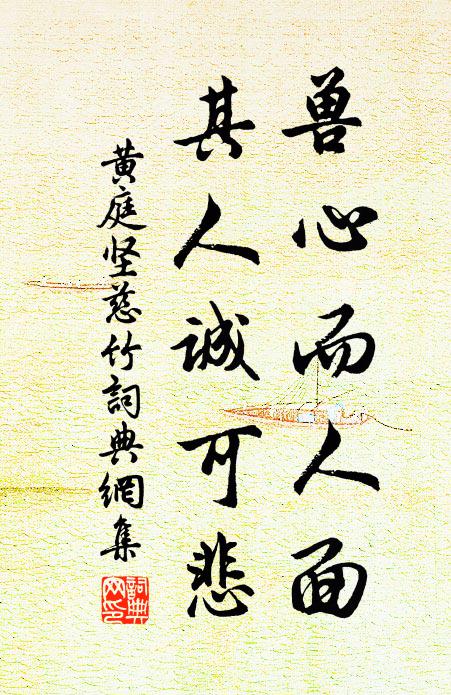 兽心而人面
其人诚可悲
黄庭坚慈竹詞典網集
詞典网印